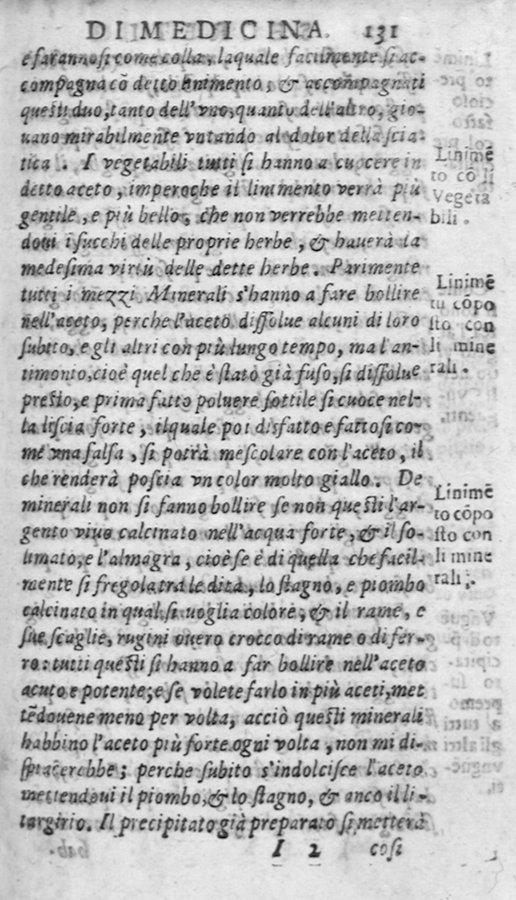 DI MEDICINA. 131
e farannosi come colla, laquale facilmente si ac-
compagna cō detto linimento, & accompagnati
questi duo, tanto dell'vno, quanto dell'altro, gio-
uano mirabilmente vntando al dolor della scia-
tica. I vegetabili tutti si hanno a cuocere in
detto aceto, imperoche il linimento verrà più
gentile, e più bello, che non verrebbe metten-
doui i succhi delle proprie herbe, & hauerà la
medesima virtù delle dette herbe. Parimente
tutti i mezzi Minerali s'hanno a fare bollire
nell'aceto, perche l'aceto dissolue alcuni di loro
subito, e gli altri con più lungo tempo, ma l'an-
timonio, cioè quel che è stato già fuso, si dissolue
presto, e prima fatto poluere sottile si cuoce nel-
la liscia forte, ilquale poi disfatto e fattosi co-
me vna salsa, si potrà mescolare con l'aceto, il
che renderà poscia vn color molto giallo. De
minerali non si fanno bollire se non questi l'ar-
gento viuo calcinato nell'acqua forte, & il so-
limato, e l'almagra, cioè se è di quella che facil-
mente si fregola tra le dita, lo stagno, e piombo
calcinato in qual si uoglia colore, & il rame, e
sue scaglie, rugini ouero crocco di rame o di fer-
ro: tutti questi si hanno a far bollire nell'aceto
acuto e potente; e se volete farlo in più aceti, met
tēdouene meno per volta, acciò questi minerali
habbino l'aceto più forte ogni volta, non mi di-
spiacerebbe; perche subito s'indolcisce l'aceto
mettendoui il piombo, & lo stagno, & anco il li-
targirio. Il precipitato già preparato si metterà
I 2 cosi
Linimē
to cō li
Vegeta
bili.
Linimē
tu cōpo
sto con
li mine
rali.
Linimē
to cōpo
sto con
li mine
rali.